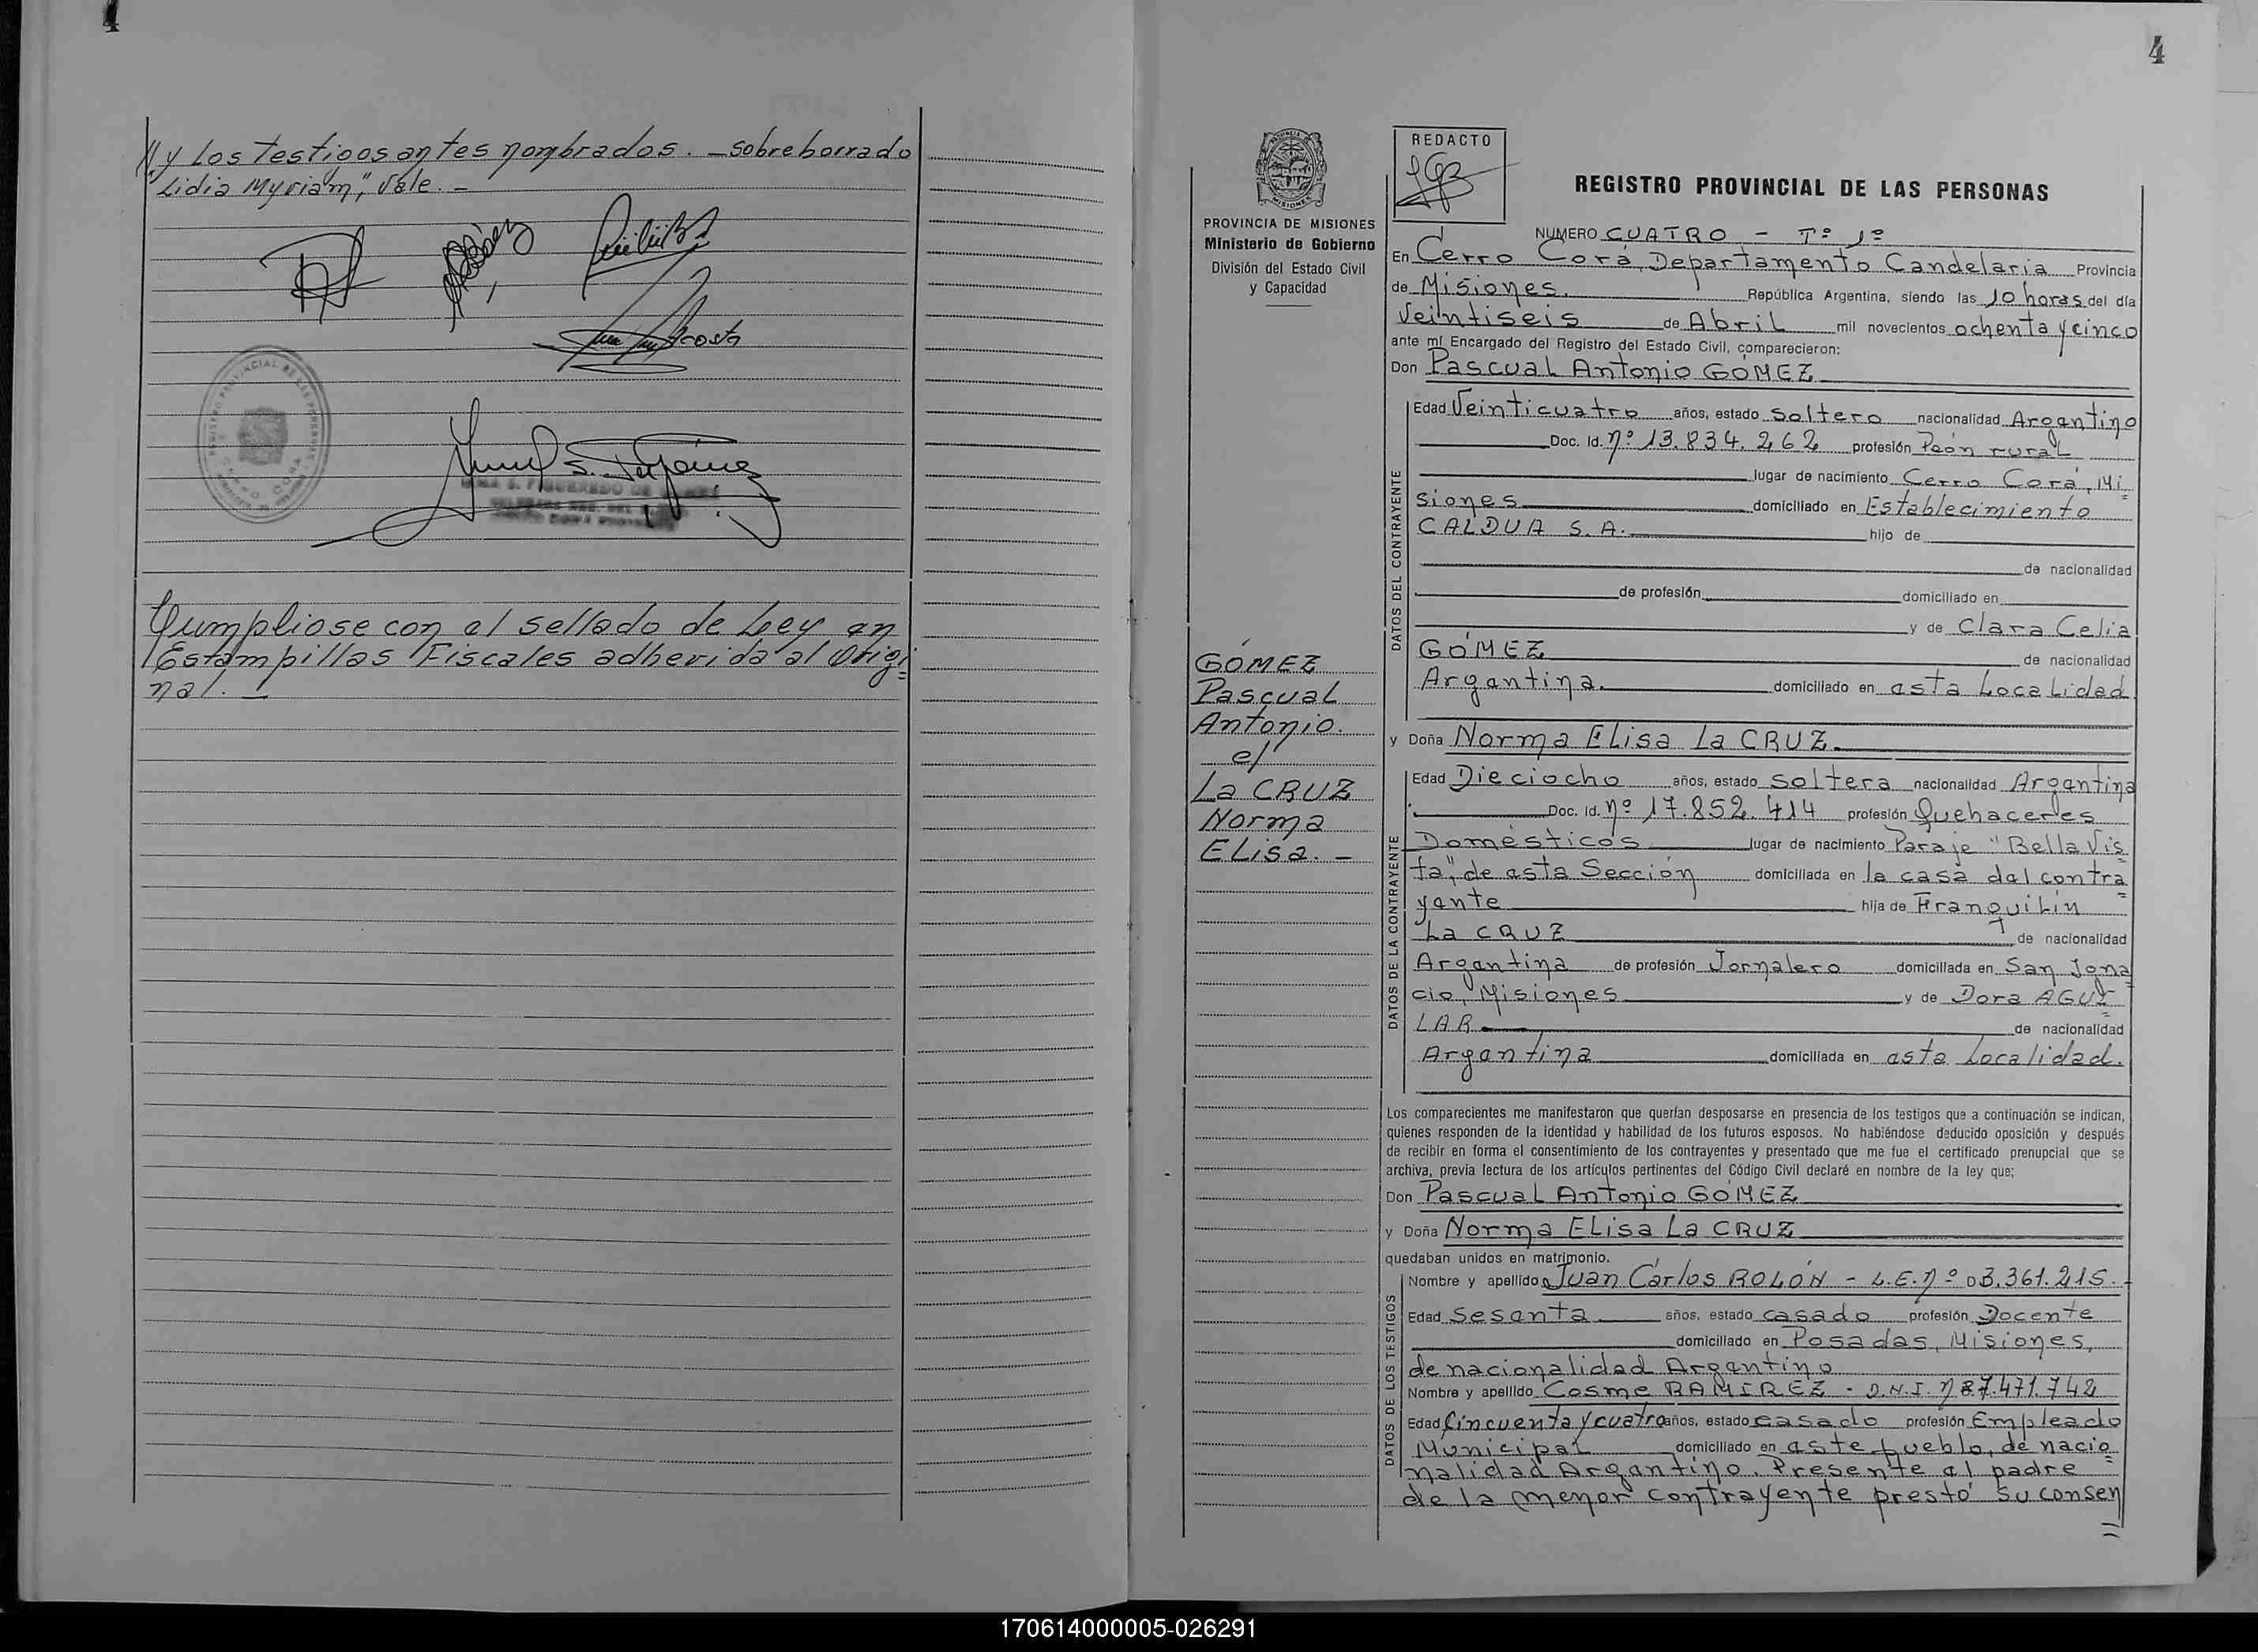 4
// y Los Testigos antes nombrados. - sobreborrado
"Lidia Myriam", Vale. -
Acosta
Cumpliose con el sellado de Ley en
Estampillas Fiscales adherida al Origi=
nal. -
4
PROVINCIA DE MISIONES
Ministerio de Gobierno
División del Estado Civil
y Capacidad
GOMEZ
Pascual
Antonio.
c/
La CRUZ
Norma
Elisa. -
REDACTO
REGISTRO PROVINCIAL DE LAS PERSONAS
NUMERO CUATRO - Tº 1º
En Cerro Corá, Departamento Candelaria Provincia
de Misiones. República Argentina, siendo las 10 horas del día
Veintiseis de Abril mil novecientos ochenta y cinco
ante mí Encargado del Registro del Estado Civil, comparecieron:
Don Pascual Antonio GOMEZ
DATOS DEL CONTRAYENTE
Edad Veinticuatro años, estado soltero nacionalidad Argentino
Doc. Id. nº 13.834.262 profesión Peón rural
lugar de nacimiento Cerro Corá, Mi=
siones domiciliado en Establecimiento
CALDUA S.A. hijo de
de nacionalidad
de profesión domiciliado en
y de Clara Celia
GOMEZ de nacionalidad
Argentina. domiciliado en esta Localidad.
y Doña Norma Elisa La CRUZ.
DATOS DE LA CONTRAYENTE
Edad Dieciocho años, estado soltera nacionalidad Argentina
Doc. Id. nº 17.852.414 profesión Quehaceres
Domésticos lugar de nacimiento Paraje "Bella Vis=
ta", de esta Sección domiciliada en la casa del contra=
yente hija de Franquilin
La CRUZ de nacionalidad
Argentina de profesión Jornalero domiciliada en San Igna=
cio, Misiones y de Dora AGUI=
LAR de nacionalidad
Argentina domiciliada en esta Localidad.
Los comparecientes me manifestaron que querían desposarse en presencia de los testigos que a continuación se indican,
quienes responden de la identidad y habilidad de los futuros esposos. No habiéndose deducido oposición y después
de recibir en forma el consentimiento de los contrayentes y presentado que me fue el certificado prenupcial que se
archiva, previa lectura de los artículos pertinentes del Código Civil declaré en nombre de la ley que;
Don Pascual Antonio GÓMEZ
y Doña Norma Elisa La CRUZ
quedaban unidos en matrimonio.
DATOS DE LOS TESTIGOS
Nombre y apellido Juan Carlos ROLÓN - L.E. nº 03.361.215.-
Edad Sesenta años, estado casado profesión Docente
domiciliado en Posadas, Misiones,
de nacionalidad Argentino
Nombre y apellido Cosme RAMIREZ - D.N.I. nº 7.471.742
Edad Cincuenta y cuatro años, estado casado profesión Empleado
Municipal domiciliado en este pueblo, de nacio=
nalidad Argentino. Presente el padre
de la menor contrayente prestó su consen=
170614000005-026291